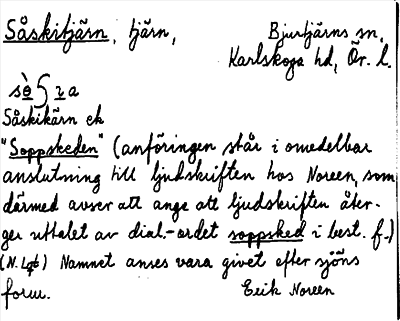 Såskitjärn, tjärn, Bjurtjärns sn,
Karlskoga hd, Ör. l.
Såskikärn ek
"Soppskeden" (anföringen står i omedelbar
anslutning till ljudskriften hos Noreen, som
därmed avser att ange att ljudskriften åter-
ger uttalet av dial.-ordet soppsked i best. f.)
Namnet anses vara givet efter sjöns
form. Erik Noreen